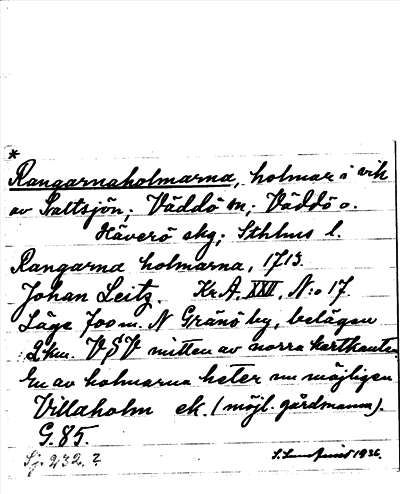 *
Rangarnaholmarna, holmar i vik
av Saltsjön; Väddö sn; Väddö o.
Häverö skg; Sthlms l.
Rangarna holmarna, 1713.
Johan Leitz. Kr A. XXII, N:o 17.
Läge 700 m. N Gränö by, belägen
2 km. VSV mitten av norra kartkanten
En av holmarna heter nu möjligen
Villaholm ek. (möjl. gårdmann).
G. 85.
Sj. 232. ?
1936.